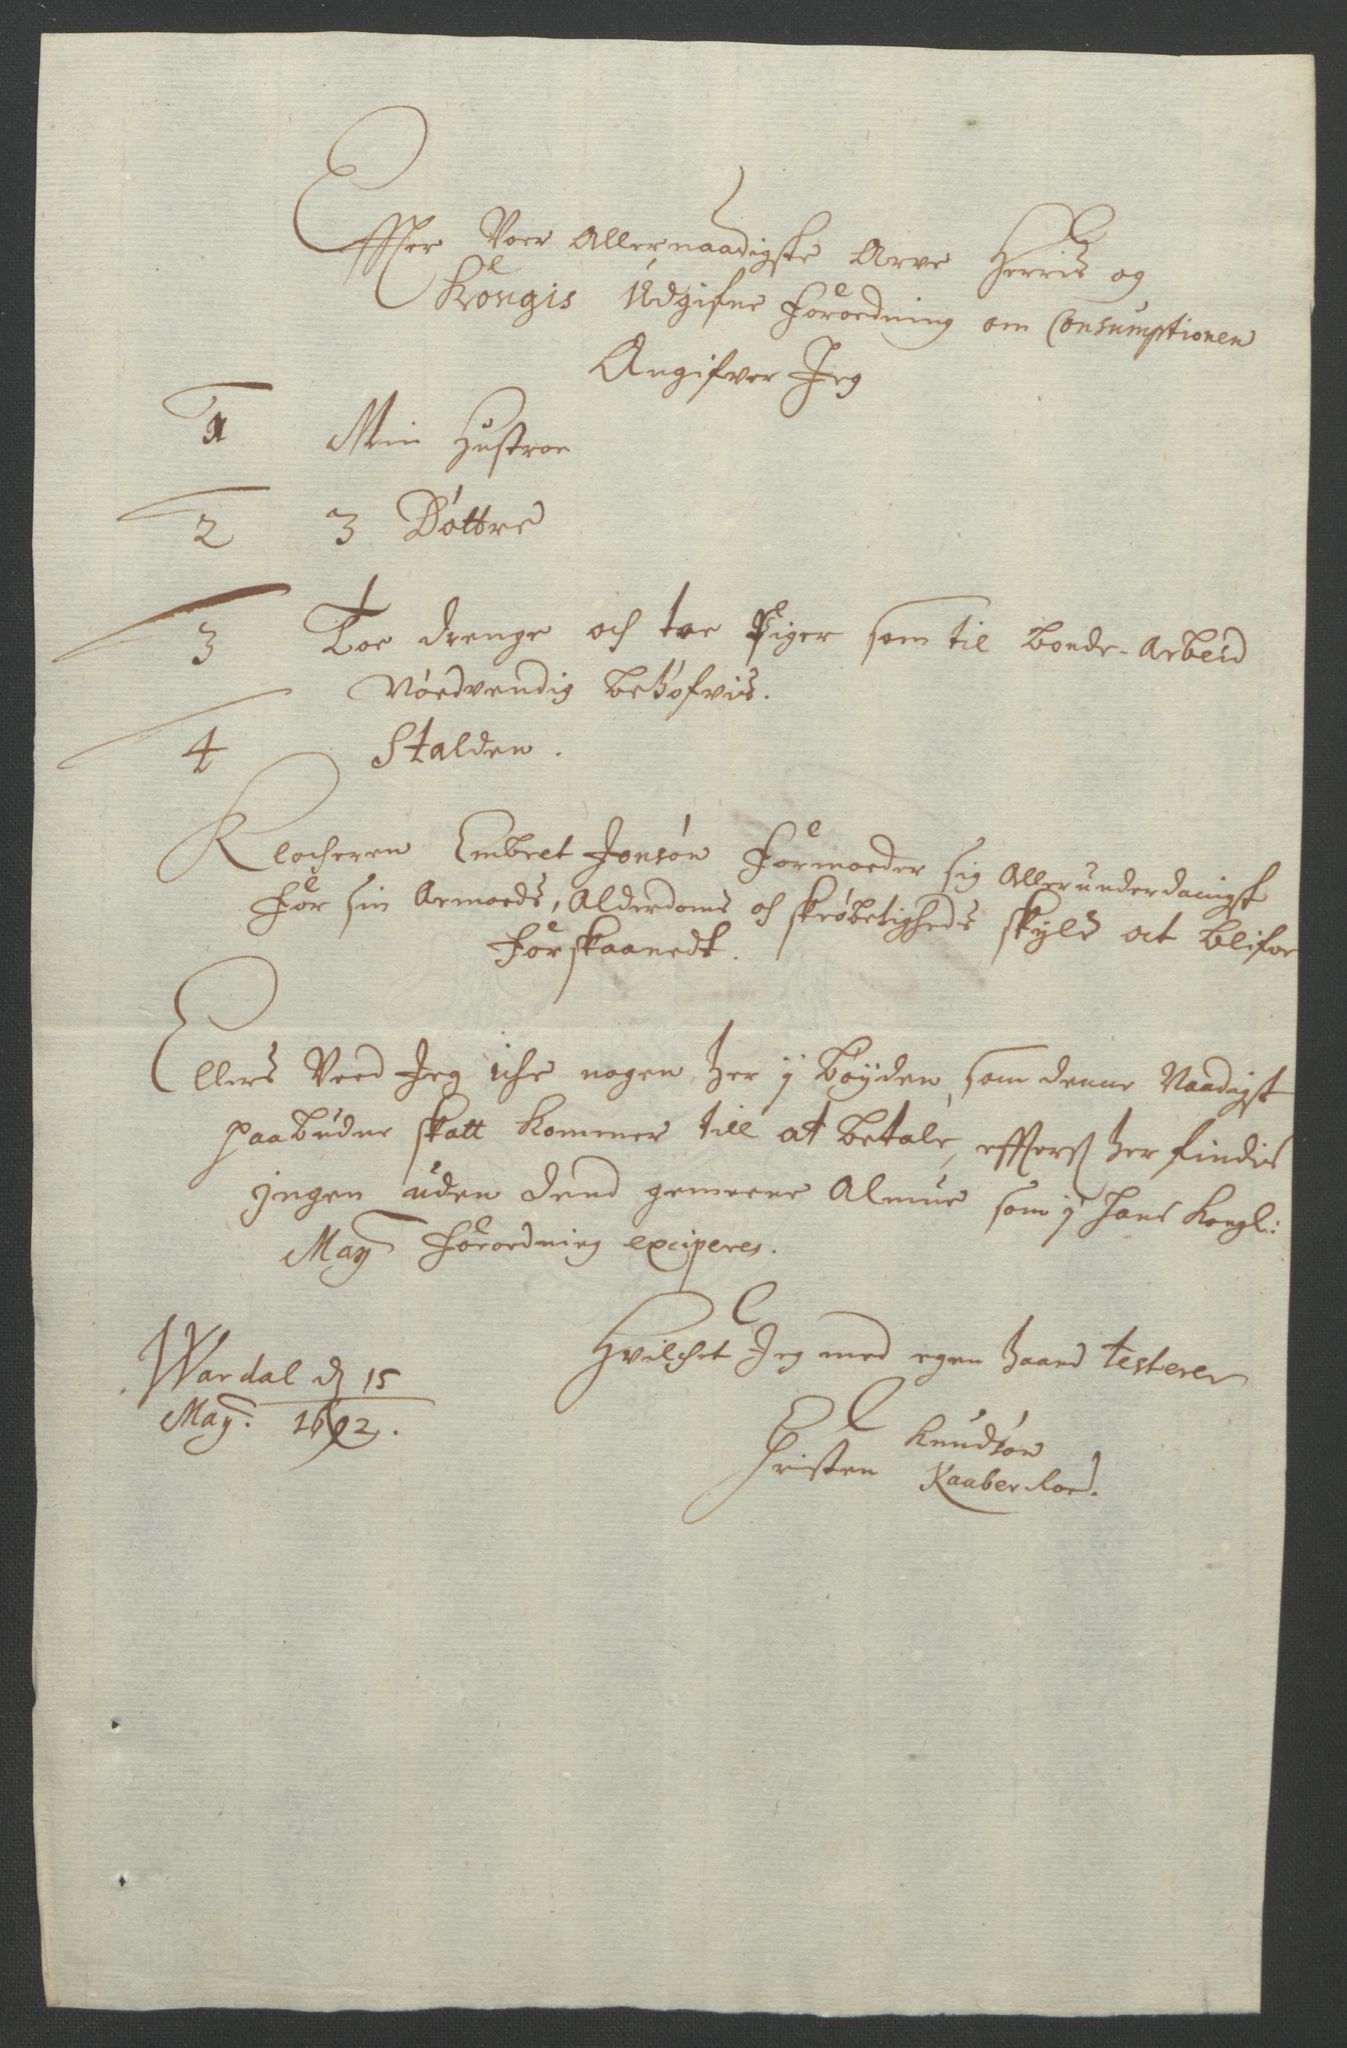 Effter Voer Allernaadigste Arve Herris og
Kongis Udgifne Forordning om Consumptionen
Angifver Jeg
1 Min Hustroe
2 3 Døttre
3 Toe drenge och toe Piger som til bonde-Arbeid
Nøedvendig behøfvis.
4 Stalden.
Klocheren Embret Jonsøn Formoeder sig Allerunderdanigst
For sin Armoeds, Alderdoms och skrøbeligheds skyld at blifve
Forskaanedt.
Ellers Veed Jeg iche nogen her j bøyden, som denne Naadigst
paabudne skatt kommer till at betale, effterß her findis
jngen uden dend gemeene Almue som j Hans Kongl:
May Forordning exciperes.
Hvilchet Jeg med egen haand testerer
Wardal d 15
May. 1692.
Christen Knudsøn
Kaaberkoe.